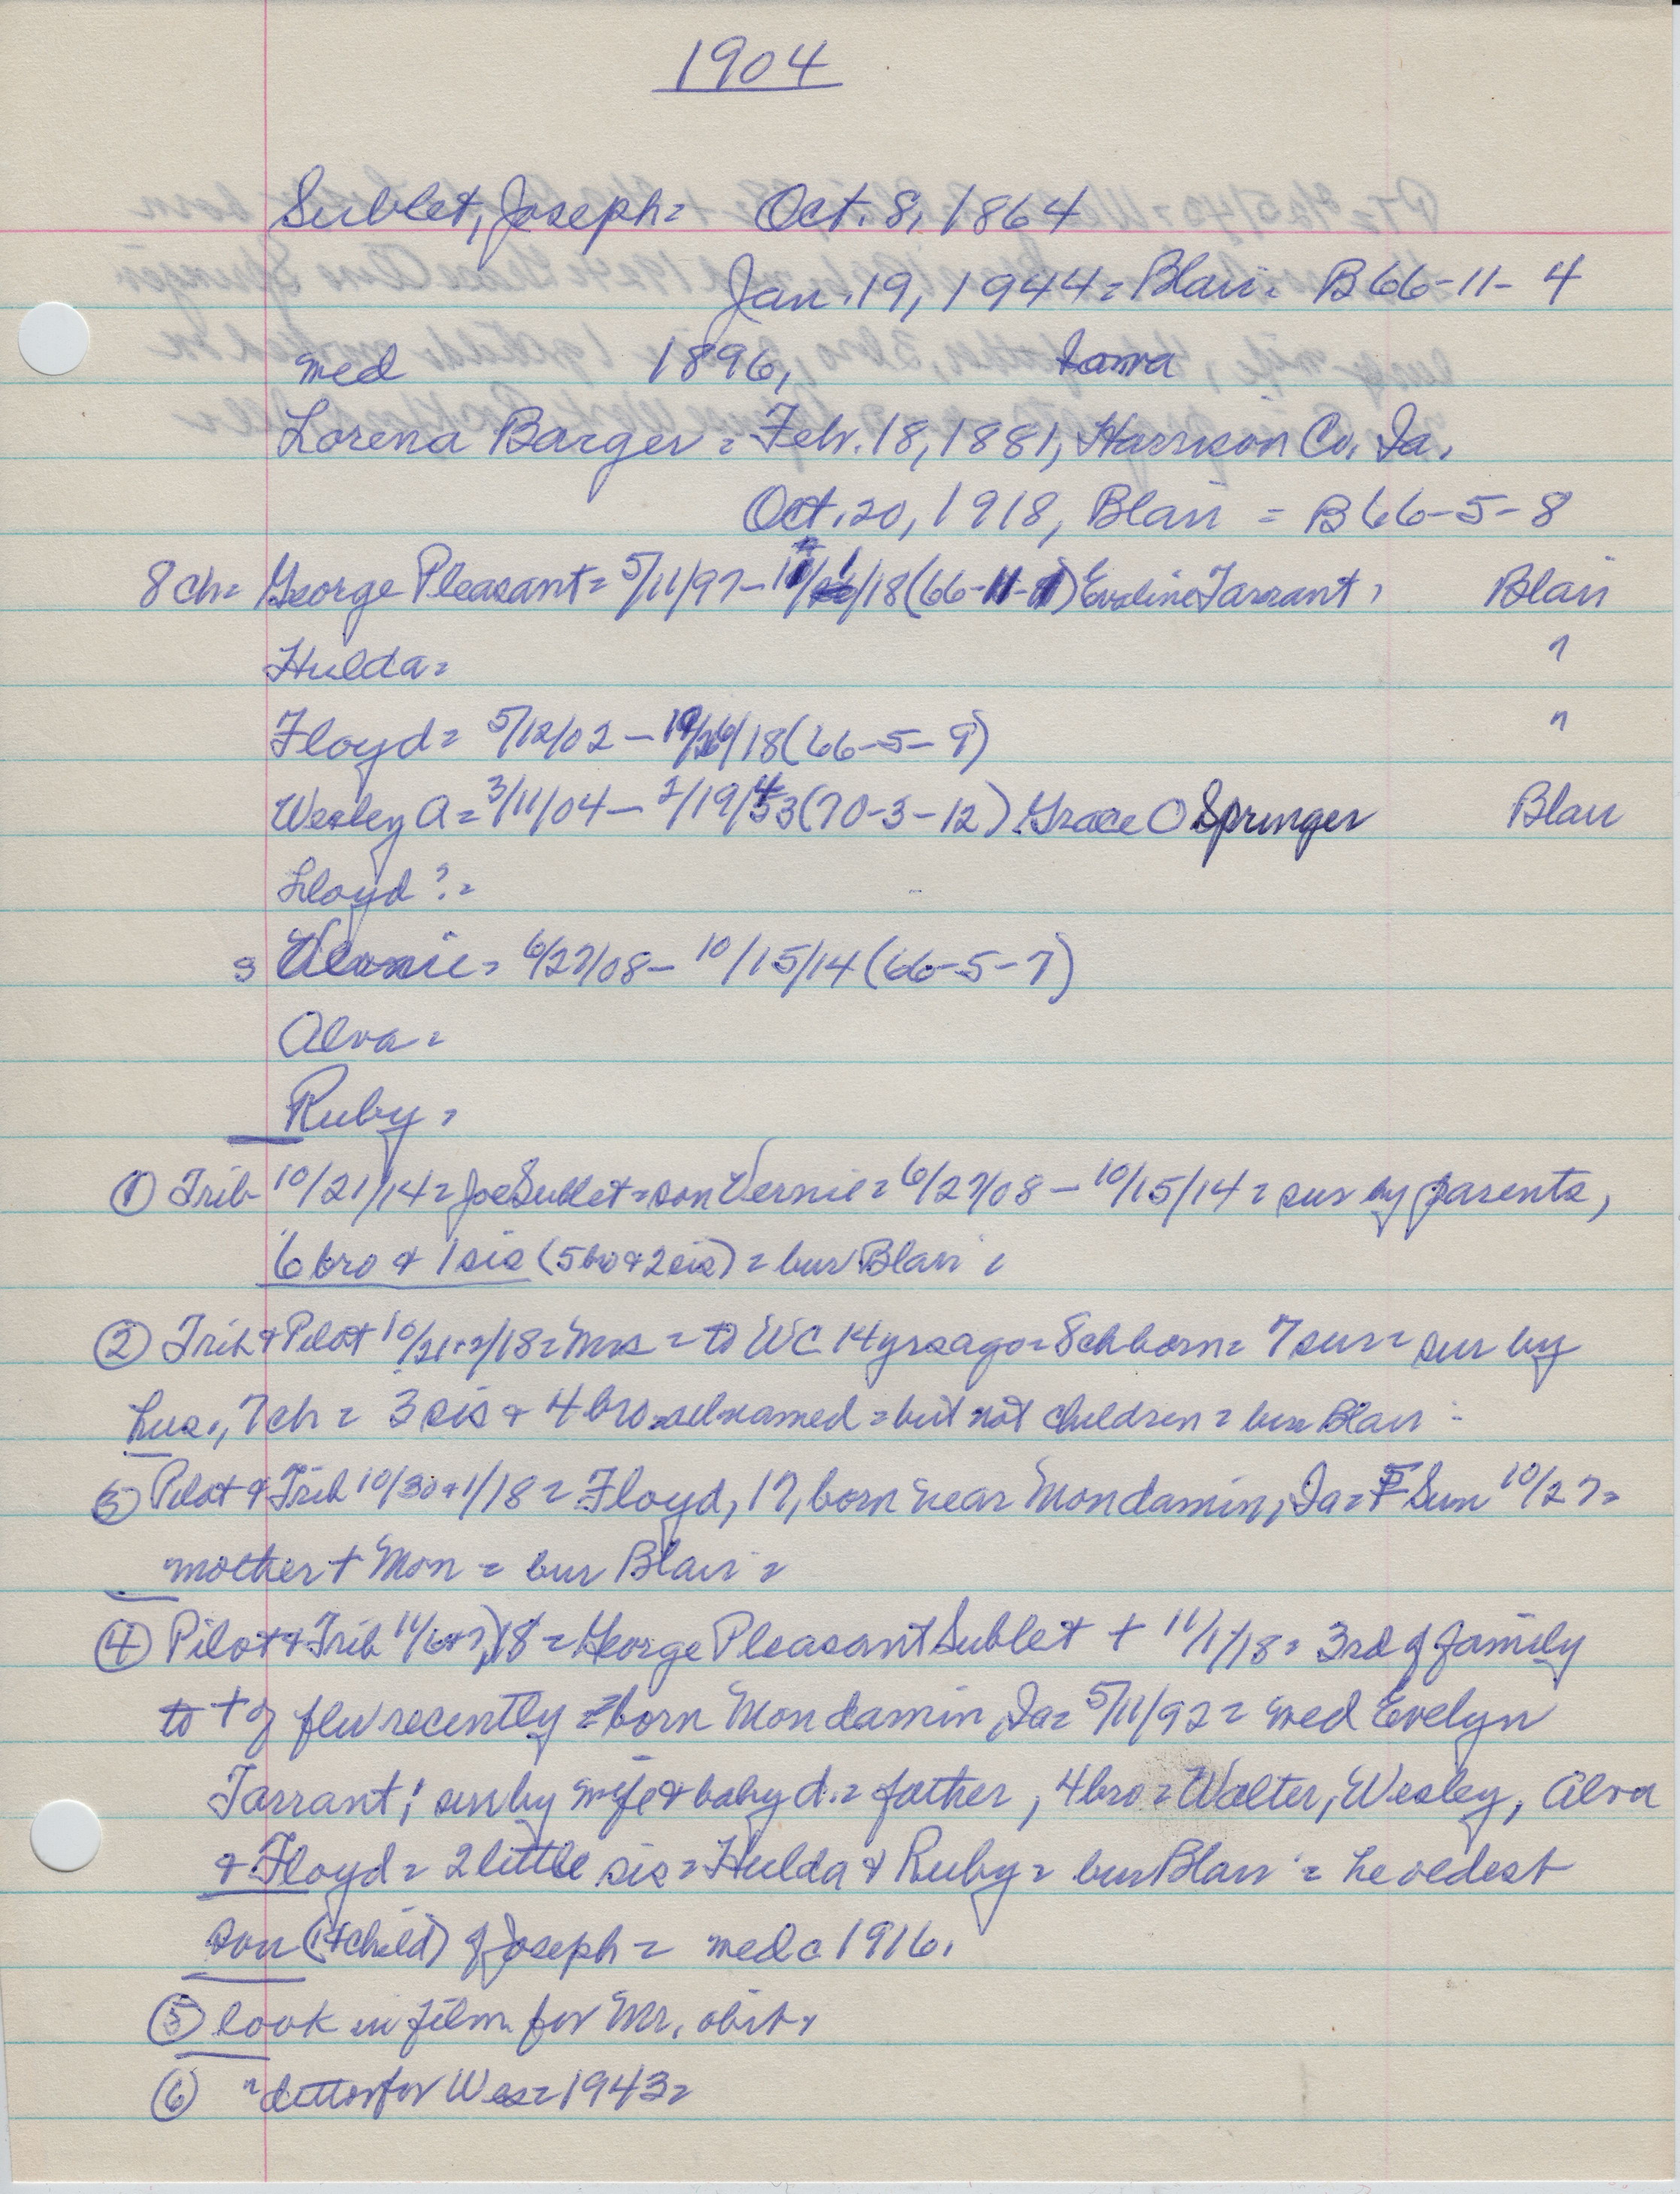 1904
Sublet, Joseph = Oct. 8, 1864
Jan. 19, 1944 = Blair = B 66-11-4
med 1896, Iowa
Lorena Barger = Feb. 18, 1881, Harrison Co. Ia.
Oct. 20, 1918, Blair = B 66-5-8
8 ch = George Pleasant = 5/11/97 - /18 (66-11-1) Evaline Tarrant, Blair
Hulda = "
Floyd = 5/12/02 - /18 (66-5-9) "
Wesley A = 3/11/04 - 2/19/43 (70-3-12) Grace O Springer Blair
Lloyd ? =
Vernie = 6/27/08 - 10/15/14 (66-5-7)
Alva =
Ruby =
① Trib 10/21/14 = Joe Sublet = son Vernie = 6/27/08 - 10/15/14 = sur by parents,
6 bro & 1 sis (5 bro & 2 sis) = bur Blair =
② Trib & Pilot 10/ /18 = Mrs = to WC 14 yrs ago = 8 ch born = 7 sur = sur by
hus., 7 ch = 3 sis & 4 bro = all named = but not children = bur Blair =
③ Pilot & Trib 10/30 & 1/18 = Floyd, 17, born near Mondamin, Ia = Sun 10/27 =
mother + Mon = bur Blair =
④ Pilot & Trib 11/6 & 7/18 = George Pleasant Sublet + 11/1/18 = 3rd of family
to + of flu recently = born Mondamin, Ia = 5/11/92 = med Evelyn
Tarrant; sur by wife & baby d. = father, 4 bro = Walter, Wesley, Alva
& Floyd = 2 little sis = Hulda & Ruby = bur Blair = he oldest
son (1st child) of Joseph = med c 1916.
⑤ look in film for Mr. obit.
⑥ " ditto for Wes = 1943 =